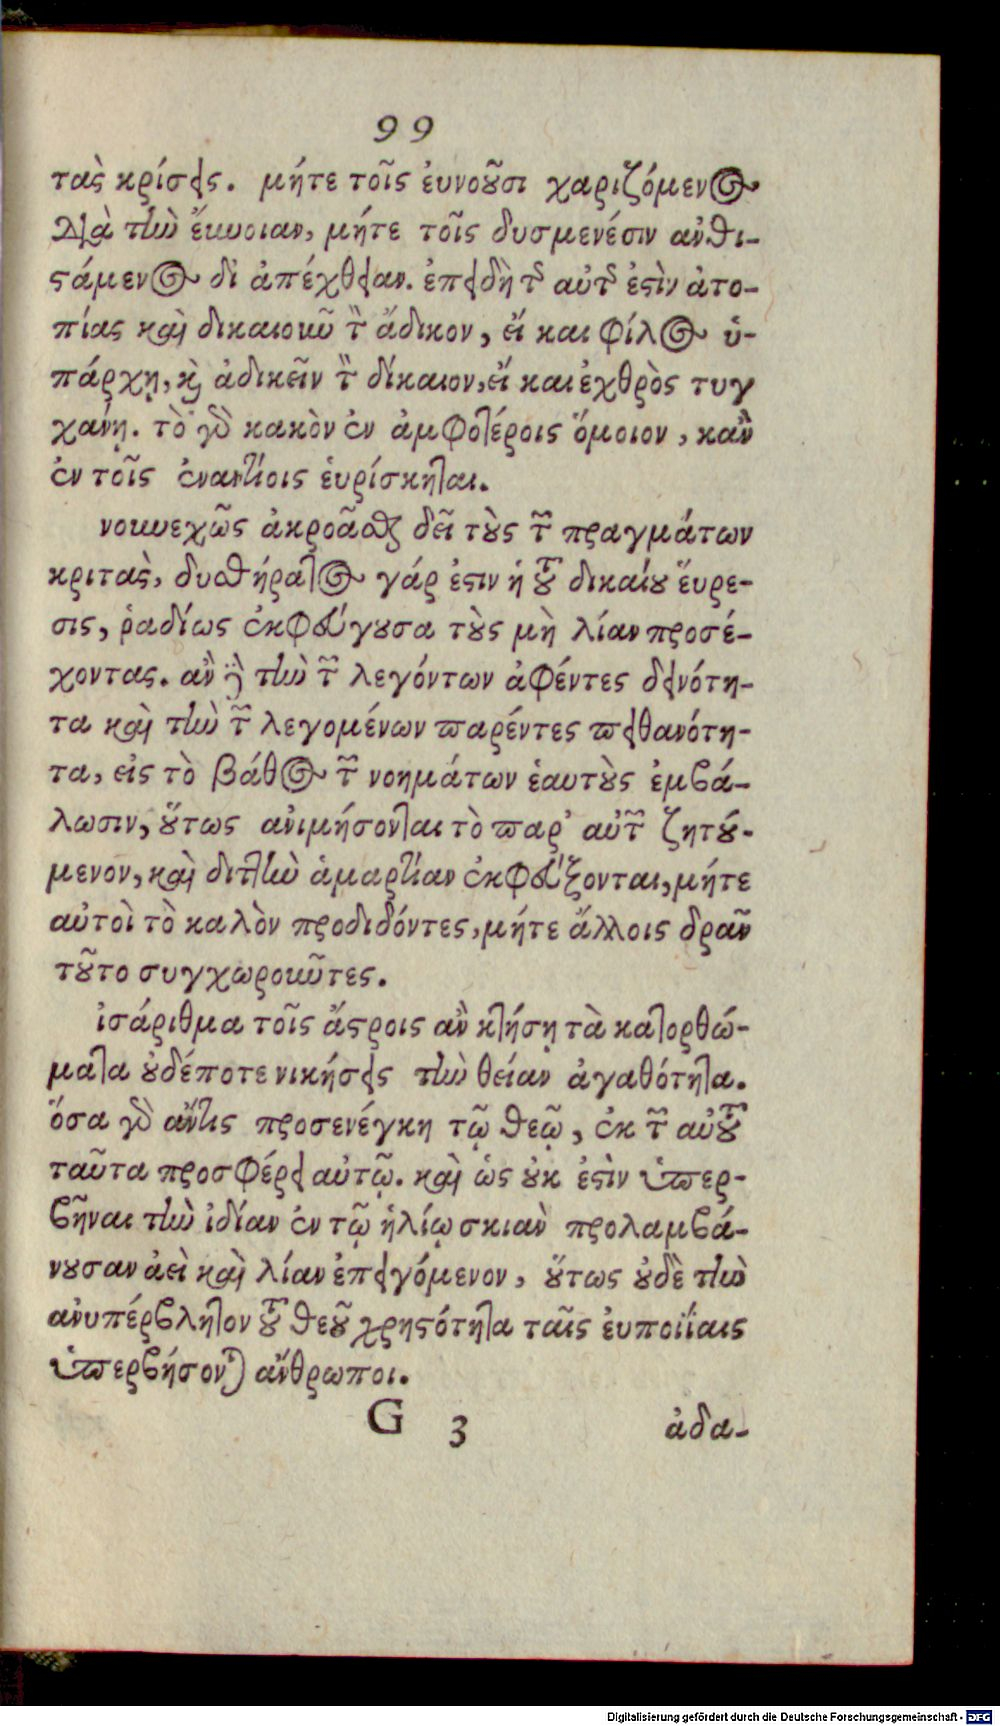 99
τὰς κρίσεις. μήτε τοῖς ἐυνοῦσι χαριζόμενος
διὰ τὴν ἔυνοιαν, μήτε τοῖς δυσμενέσιν ἀνθι-
στάμενος δι ἀπέχθειαν. ἐπειδὴ τῆς αὐτῆς ἐστὶν ἀτο-
πίας καὶ δικαιοῦν τὸν ἄδικον, εἴ και φίλος ὑ-
πάρχῃ, καὶ ἀδικεῖν τὸν δίκαιον, εἴ και ἐχθρὸς τυγ
χάνῃ. τὸ γὰρ κακὸν ἐν ἀμφοτέροις ὅμοιον, κἂν
ἐν τοῖς ἐναντίοις ἑυρίσκηται.
νουνεχῶς ἀκροᾶσθαι δεῖ τοὺς τῶν πραγμάτων
κριτὰς, δυσθήρατος γάρ ἐστιν ἡ τοῦ δικαίου ἕυρε-
σις, ῥαδίως ἐκφεύγουσα τοὺς μὴ λίαν προσέ-
χοντας. ἂν δὲ τὴν τῶν λεγόντων ἀφέντες δεινότη-
τα καὶ τὴν τῶν λεγομένων παρέντες πειθανότη-
τα, εἰς τὸ βάθος τῶν νοημάτων ἑαυτοὺς ἐμβά-
λωσιν, οὕτως ἀνιμήσονται τὸ παρ’ αὐτῶν ζητού-
μενον, καὶ διττὴν ἁμαρτίαν ἐκφεύξονται, μήτε
αὐτοὶ τὸ καλὸν προδιδόντες, μήτε ἄλλοις δρᾶν
τοῦτο συγχωροῦντες.
ἰσάριθμα τοῖς ἄστροις ἂν κτήσῃ τὰ κατορθώ-
ματα οὐδέποτε νικήσεις τὴν θείαν ἀγαθότητα.
ὅσα γὰρ ἄν τις προσενέγκη τῷ θεῷ, ἐκ τῶν αὐτοῦ
ταῦτα προσφέρει αὐτῷ. καὶ ὡς οὐκ ἐστὶν ὑπερ-
βῆναι τὴν ἰδίαν ἐν τῷ ἡλίῳ σκιὰν προλαμβά-
νουσαν ἀεὶ καὶ λίαν ἐπειγόμενον, οὕτως οὐδὲ τὴν
ἀνυπέρβλητον τοῦ θεοῦ χρηστότητα ταῖς ἐυποιΐαις
ὑπερβήσονται ἄνθρωποι.
G 3 ἀδα-
Digitalisierung gefördert durch die Deutsche Forschungsgemeinschaft - DFG